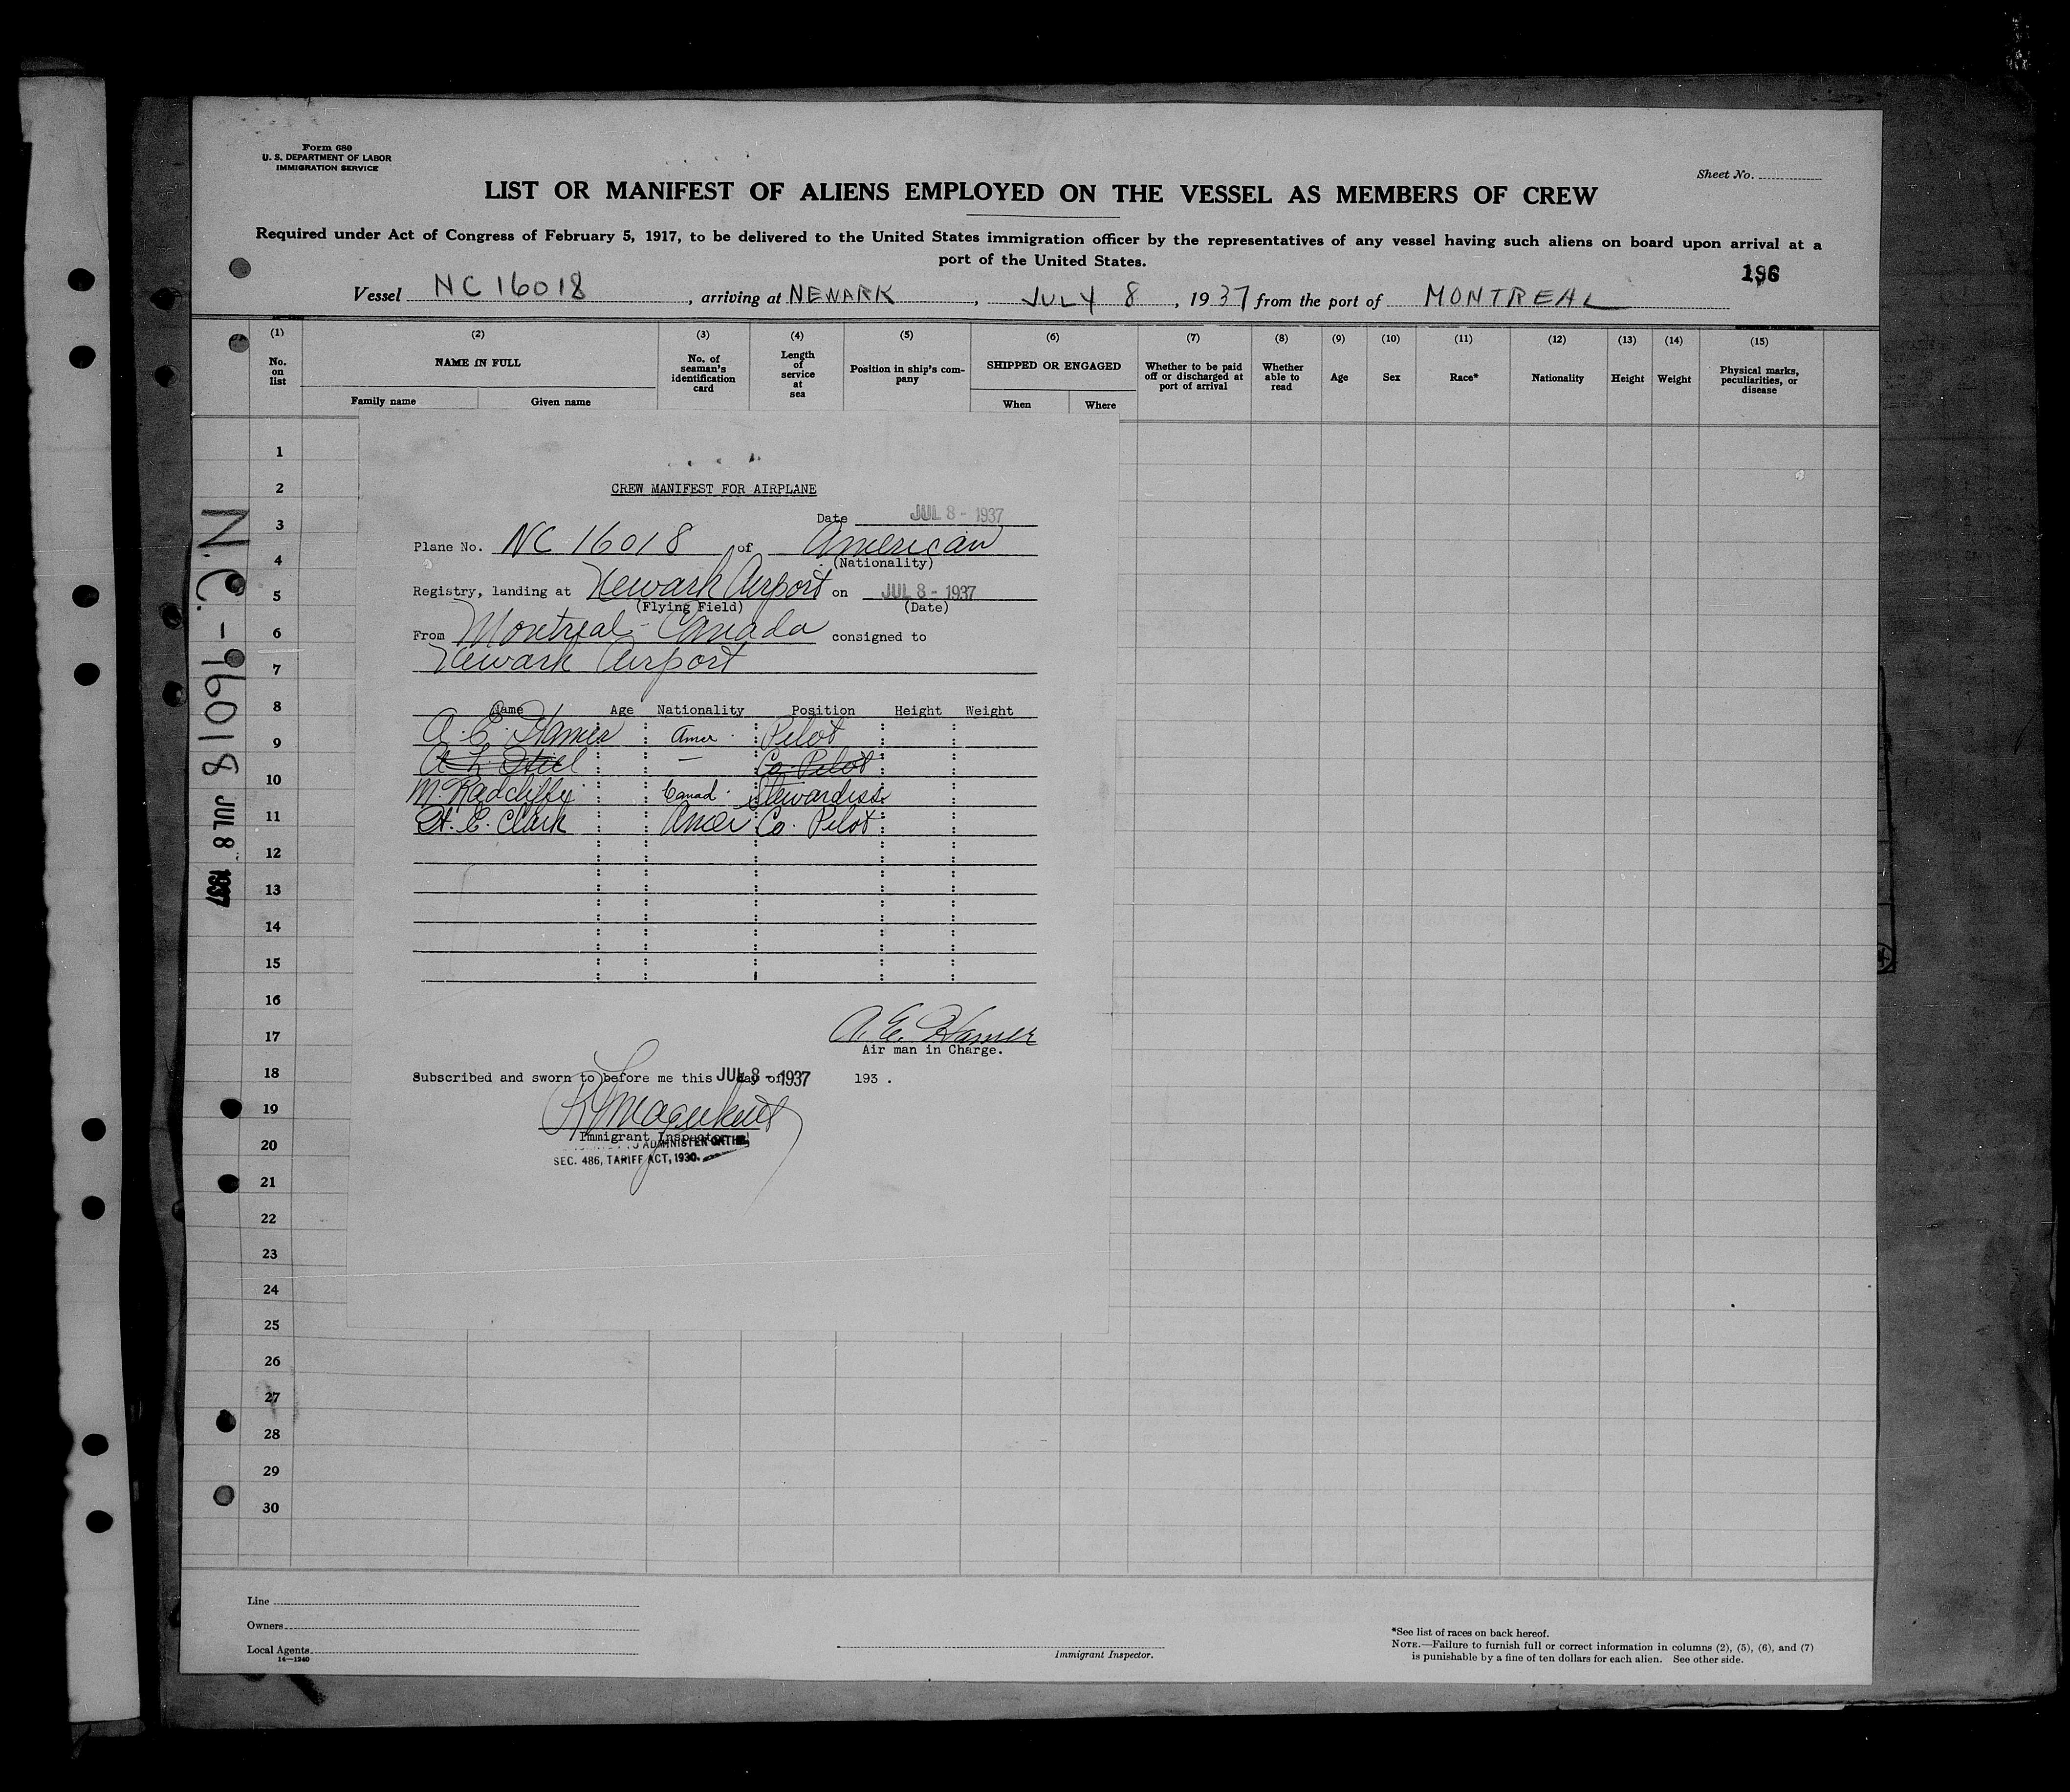 Form 680
U. S. DEPARTMENT OF LABOR
IMMIGRATION SERVICE
Sheet No.
LIST OR MANIFEST OF ALIENS EMPLOYED ON THE VESSEL AS MEMBERS OF CREW
Required under Act of Congress of February 5, 1917, to be delivered to the United States immigration officer by the representatives of any vessel having such aliens on board upon arrival at a
port of the United States.
196
Vessel NC 16018, arriving at NEWARK, JULY 8, 1937 from the port of MONTREAL
(1) (2) (3) (4) (5) (6) (7) (8) (9) (10) (11) (12) (13) (14) (15)
No. on list
NAME IN FULL
Family name Given name
No. of seaman's identification card
Length of service at sea
Position in ship's company
SHIPPED OR ENGAGED
When Where
Whether to be paid off or discharged at port of arrival
Whether able to read
Age
Sex
Race*
Nationality
Height
Weight
Physical marks, peculiarities, or disease
1
2
3
4
5
6
7
8
9
10
11
12
13
14
15
16
17
18
19
20
21
22
23
24
25
26
27
28
29
30
N.C.-16018 JUL 8 1937
CREW MANIFEST FOR AIRPLANE
Date JUL 8 - 1937
Plane No. NC 16018 of American
(Nationality)
Registry, landing at Newark Airport on JUL 8 - 1937
(Flying Field) (Date)
From Montreal - Canada consigned to
Newark Airport
Name Age Nationality Position Height Weight
A. E. Hamer Amer. Pilot
A. L. — Co. Pilot
M. Radcliffe Canad. Stewardess
H. E. Clark Amer Co. Pilot
A. E. Hamer
Air man in Charge.
Subscribed and sworn to before me this JUL 8 - 1937 day of 193 .
Immigrant Inspector
TO ADMINISTER OATHS
SEC. 486, TARIFF ACT, 1930.
Line
Owners
Local Agents
14—1240
Immigrant Inspector.
*See list of races on back hereof.
NOTE.—Failure to furnish full or correct information in columns (2), (5), (6), and (7)
is punishable by a fine of ten dollars for each alien. See other side.